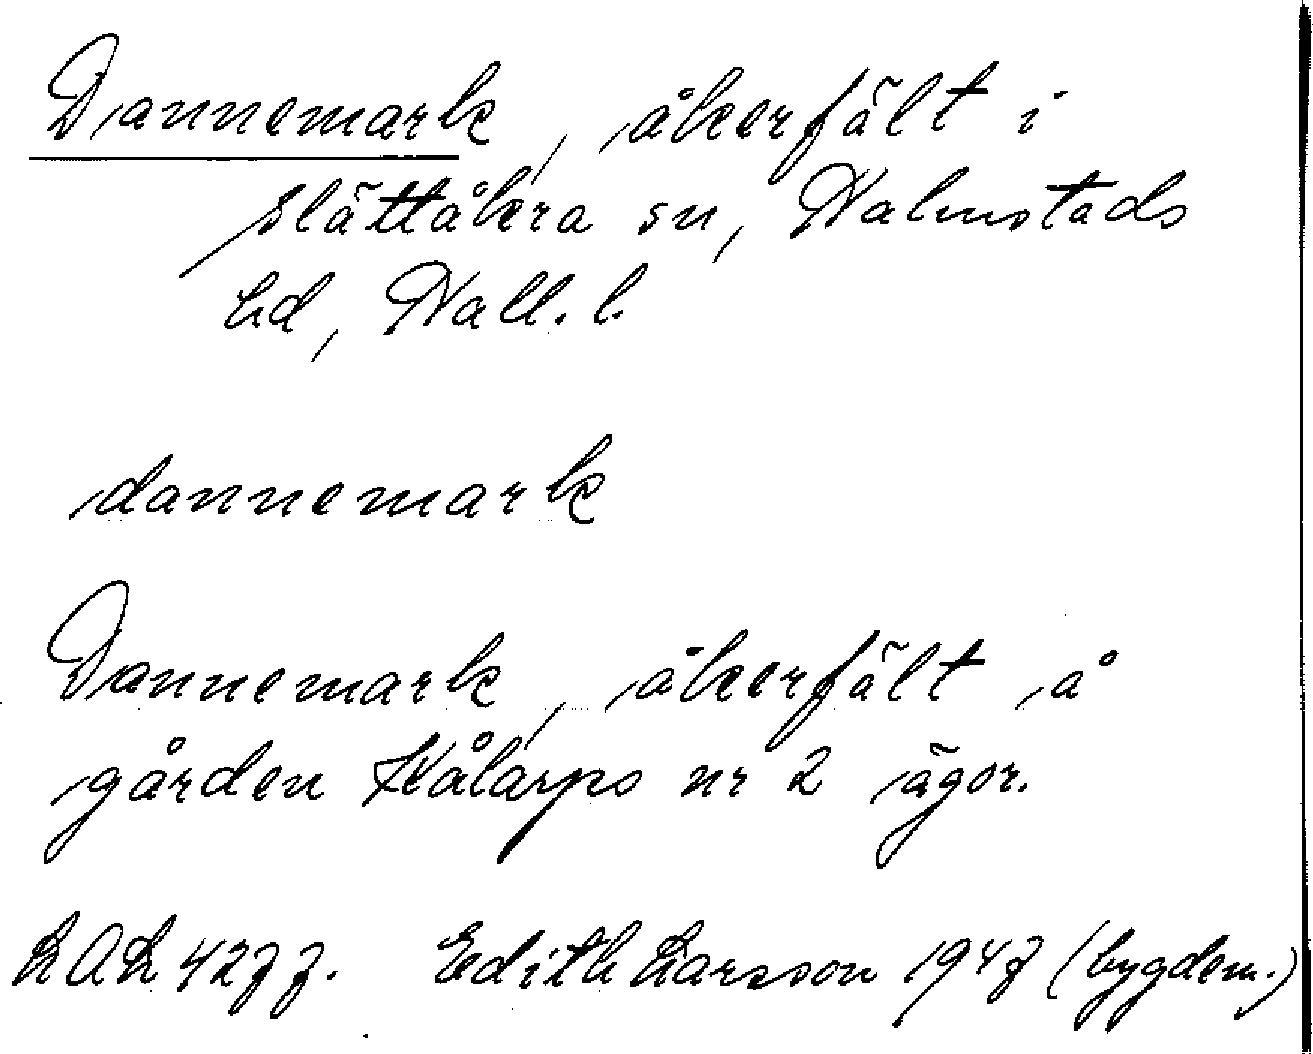 Dannemark, åkerfält i
Slättåkra sn, Halmstads
hd, Hall. l.
dannemark
Dannemark, åkerfält å
gården Kålarps nr 2 ägor.
LAL 4277. Edith Larsson 1947 (bygdem.)